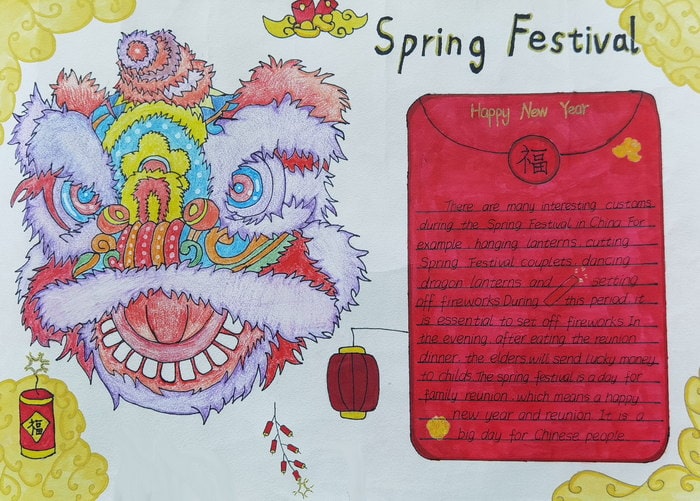 Spring Festival
Happy New Year
福
There are many interesting customs
during the Spring Festival in China. For
example, hanging lanterns, cutting
Spring Festival couplets, dancing
dragon lanterns and setting
off fireworks. During this period, it
is essential to set off fireworks. In
the evening, after eating the reunion
dinner, the elders will send lucky money
to childs. The spring festival is a day for
family reunion, which means a happy
new year and reunion. It is a
big day for Chinese people.
福